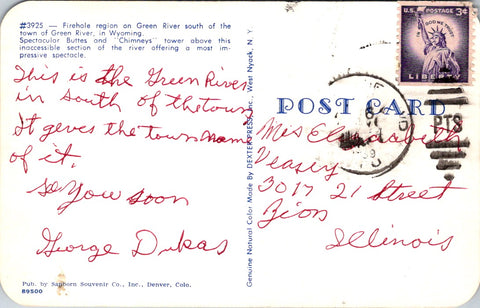 #3925 — Firehole region on Green River south of the
town of Green River, in Wyoming.
Spectacular Buttes and "Chimneys" tower above this
inaccessible section of the river offering a most im-
pressive spectacle.
This is the Green River
in South of the town
it geves the town name
of it.
See You soon
George Dukas
Pub. by Sanborn Souvenir Co., Inc., Denver, Colo.
89500
Genuine Natural Color Made By DEXTER PRESS, Inc., West Nyack, N. Y.
POST CARD
Mrs Elizabeth
Veasey
3017 21 Street
Zion
Illinois
U.S. POSTAGE 3¢
IN GOD WE TRUST
LIBERTY
PTS